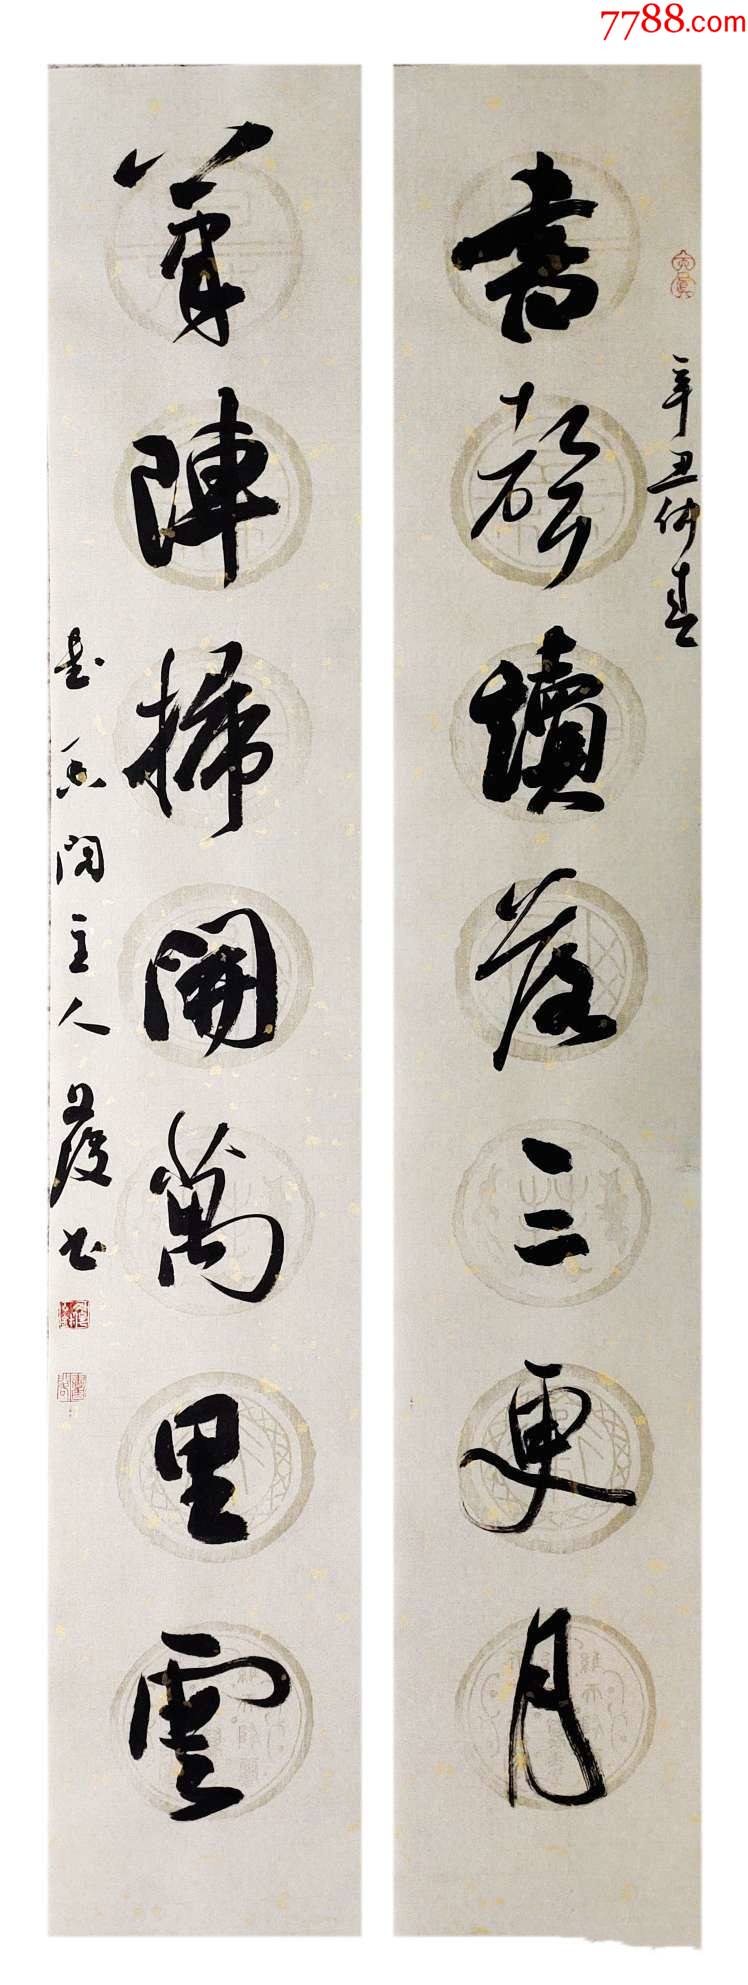 7788.com
辛丑仲春
書聲讀落三更月
筆陣掃開萬里雲
書香閣主人
書